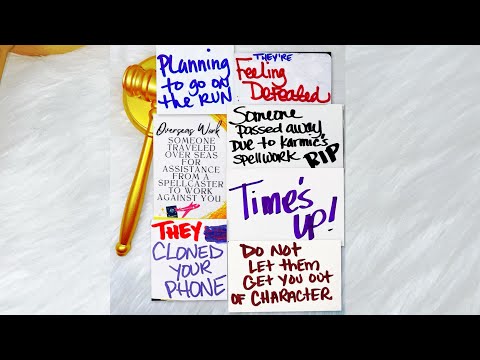 Planning
to go on
the RUN
THEY'RE
Feeling
Defeated
Overseas Work
SOMEONE
TRAVELED
OVER SEAS
FOR
ASSISTANCE
FROM A
SPELLCASTER
TO WORK
AGAINST YOU
Someone
passed away
Due to Karmic's
spellwork RIP
Time's
UP!
THEY
CLONED
YOUR
PHONE
DO NOT
LET them
GET YOU OUT
OF CHARACTER